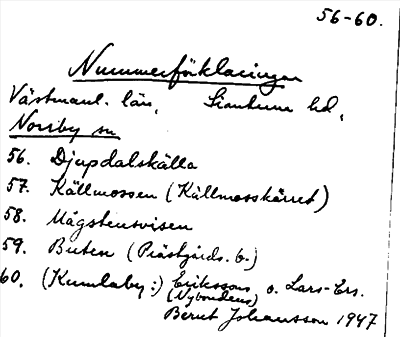 56-60.
Nummerförklaringar
Västmanl. län, Simtuna hd,
Norrby sn
56. Djupdalskälla
57. Källmossen (Källmosskärret)
58.
59. Biten (Prästgårds. b.)
60. (Kumlaby:) Erikssons o. Lars-Ers.
(Nybondens)
Bernt Johansson 1947